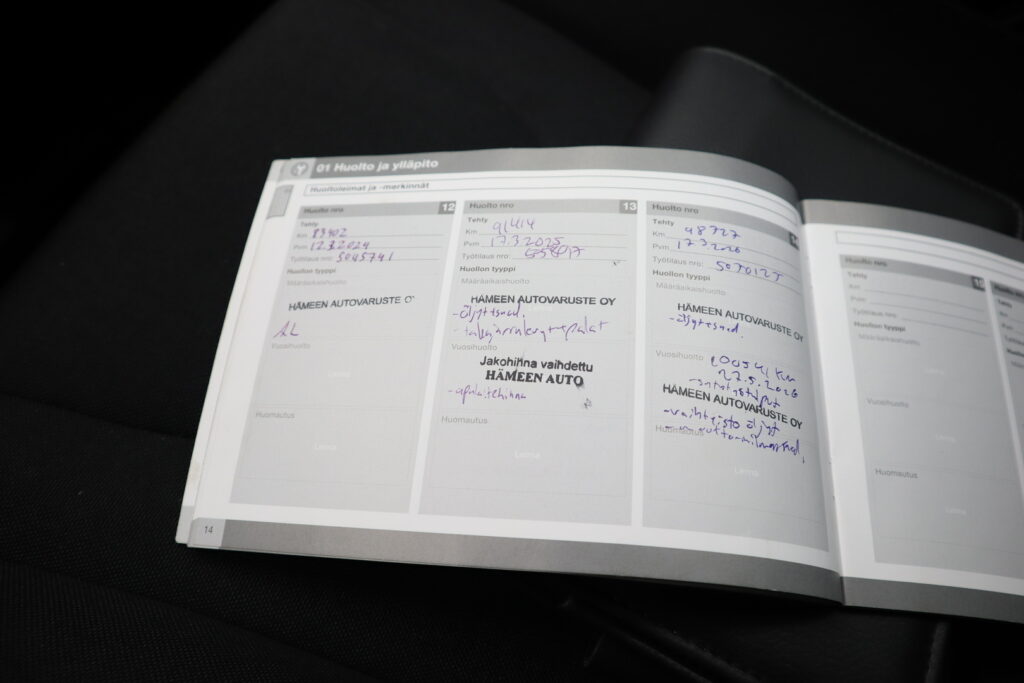 01 Huolto ja ylläpito
Huoltoleimat ja -merkinnät
Huolto nro 12
Tehty
Km 83402
Pvm 12.3.2024
Työtilaus nro: 5045741
Huollon tyyppi
Määräaikaishuolto
HÄMEEN AUTOVARUSTE OY
Vuosihuolto
Leima
Huomautus
Leima
14
Huolto nro 13
Tehty
Km 91414
Pvm 17.3.2025
Työtilaus nro:
Huollon tyyppi
Määräaikaishuolto
HÄMEEN AUTOVARUSTE OY
Vuosihuolto
Jakohihna vaihdettu
HÄMEEN AUTO
-apulaitehihna
Huomautus
Leima
Huolto nro
Tehty
Km 98727
Pvm 17.3.2026
Työtilaus nro: 5070127
Huollon tyyppi
Määräaikaishuolto
HÄMEEN AUTOVARUSTE OY
Vuosihuolto
100541 km
27.5.2026
HÄMEEN AUTOVARUSTE OY
-vaihteisto öljyt
Huomautus
Leima
Huolto nro 15
Tehty
Km
Pvm
Työtilaus nro:
Huollon tyyppi
Määräaikaishuolto
Leima
Vuosihuolto
Leima
Huomautus
Leima